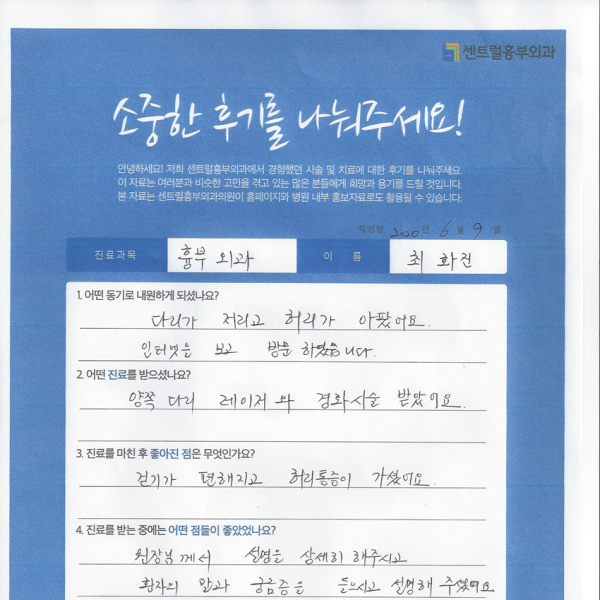 센트럴흉부외과
소중한 후기를 나눠주세요!
안녕하세요! 저희 센트럴흉부외과에서 경험했던 시술 및 치료에 대한 후기를 나눠주세요.
이 자료는 여러분과 비슷한 고민을 겪고 있는 많은 분들에게 희망과 용기를 드릴 것입니다.
본 자료는 센트럴흉부외과의원이 홈페이지와 병원 내부 홍보자료로도 활용될 수 있습니다.
작성일 2020 년 6 월 9 일
진료과목 흉부 외과 이 름 최 화진
1. 어떤 동기로 내원하게 되셨나요?
다리가 저리고 허리가 아팠어요.
인터넷을 보고 방문 하였습니다.
2. 어떤 진료를 받으셨나요?
양쪽 다리 레이저 와 경화시술 받았어요.
3. 진료를 마친 후 좋아진 점은 무엇인가요?
걷기가 편해지고 허리통증이 가셨어요.
4. 진료를 받는 중에는 어떤 점들이 좋았었나요?
원장님 께서 설명을 상세히 해주시고
환자의 말과 궁금증을 들으시고 설명해 주셨어요